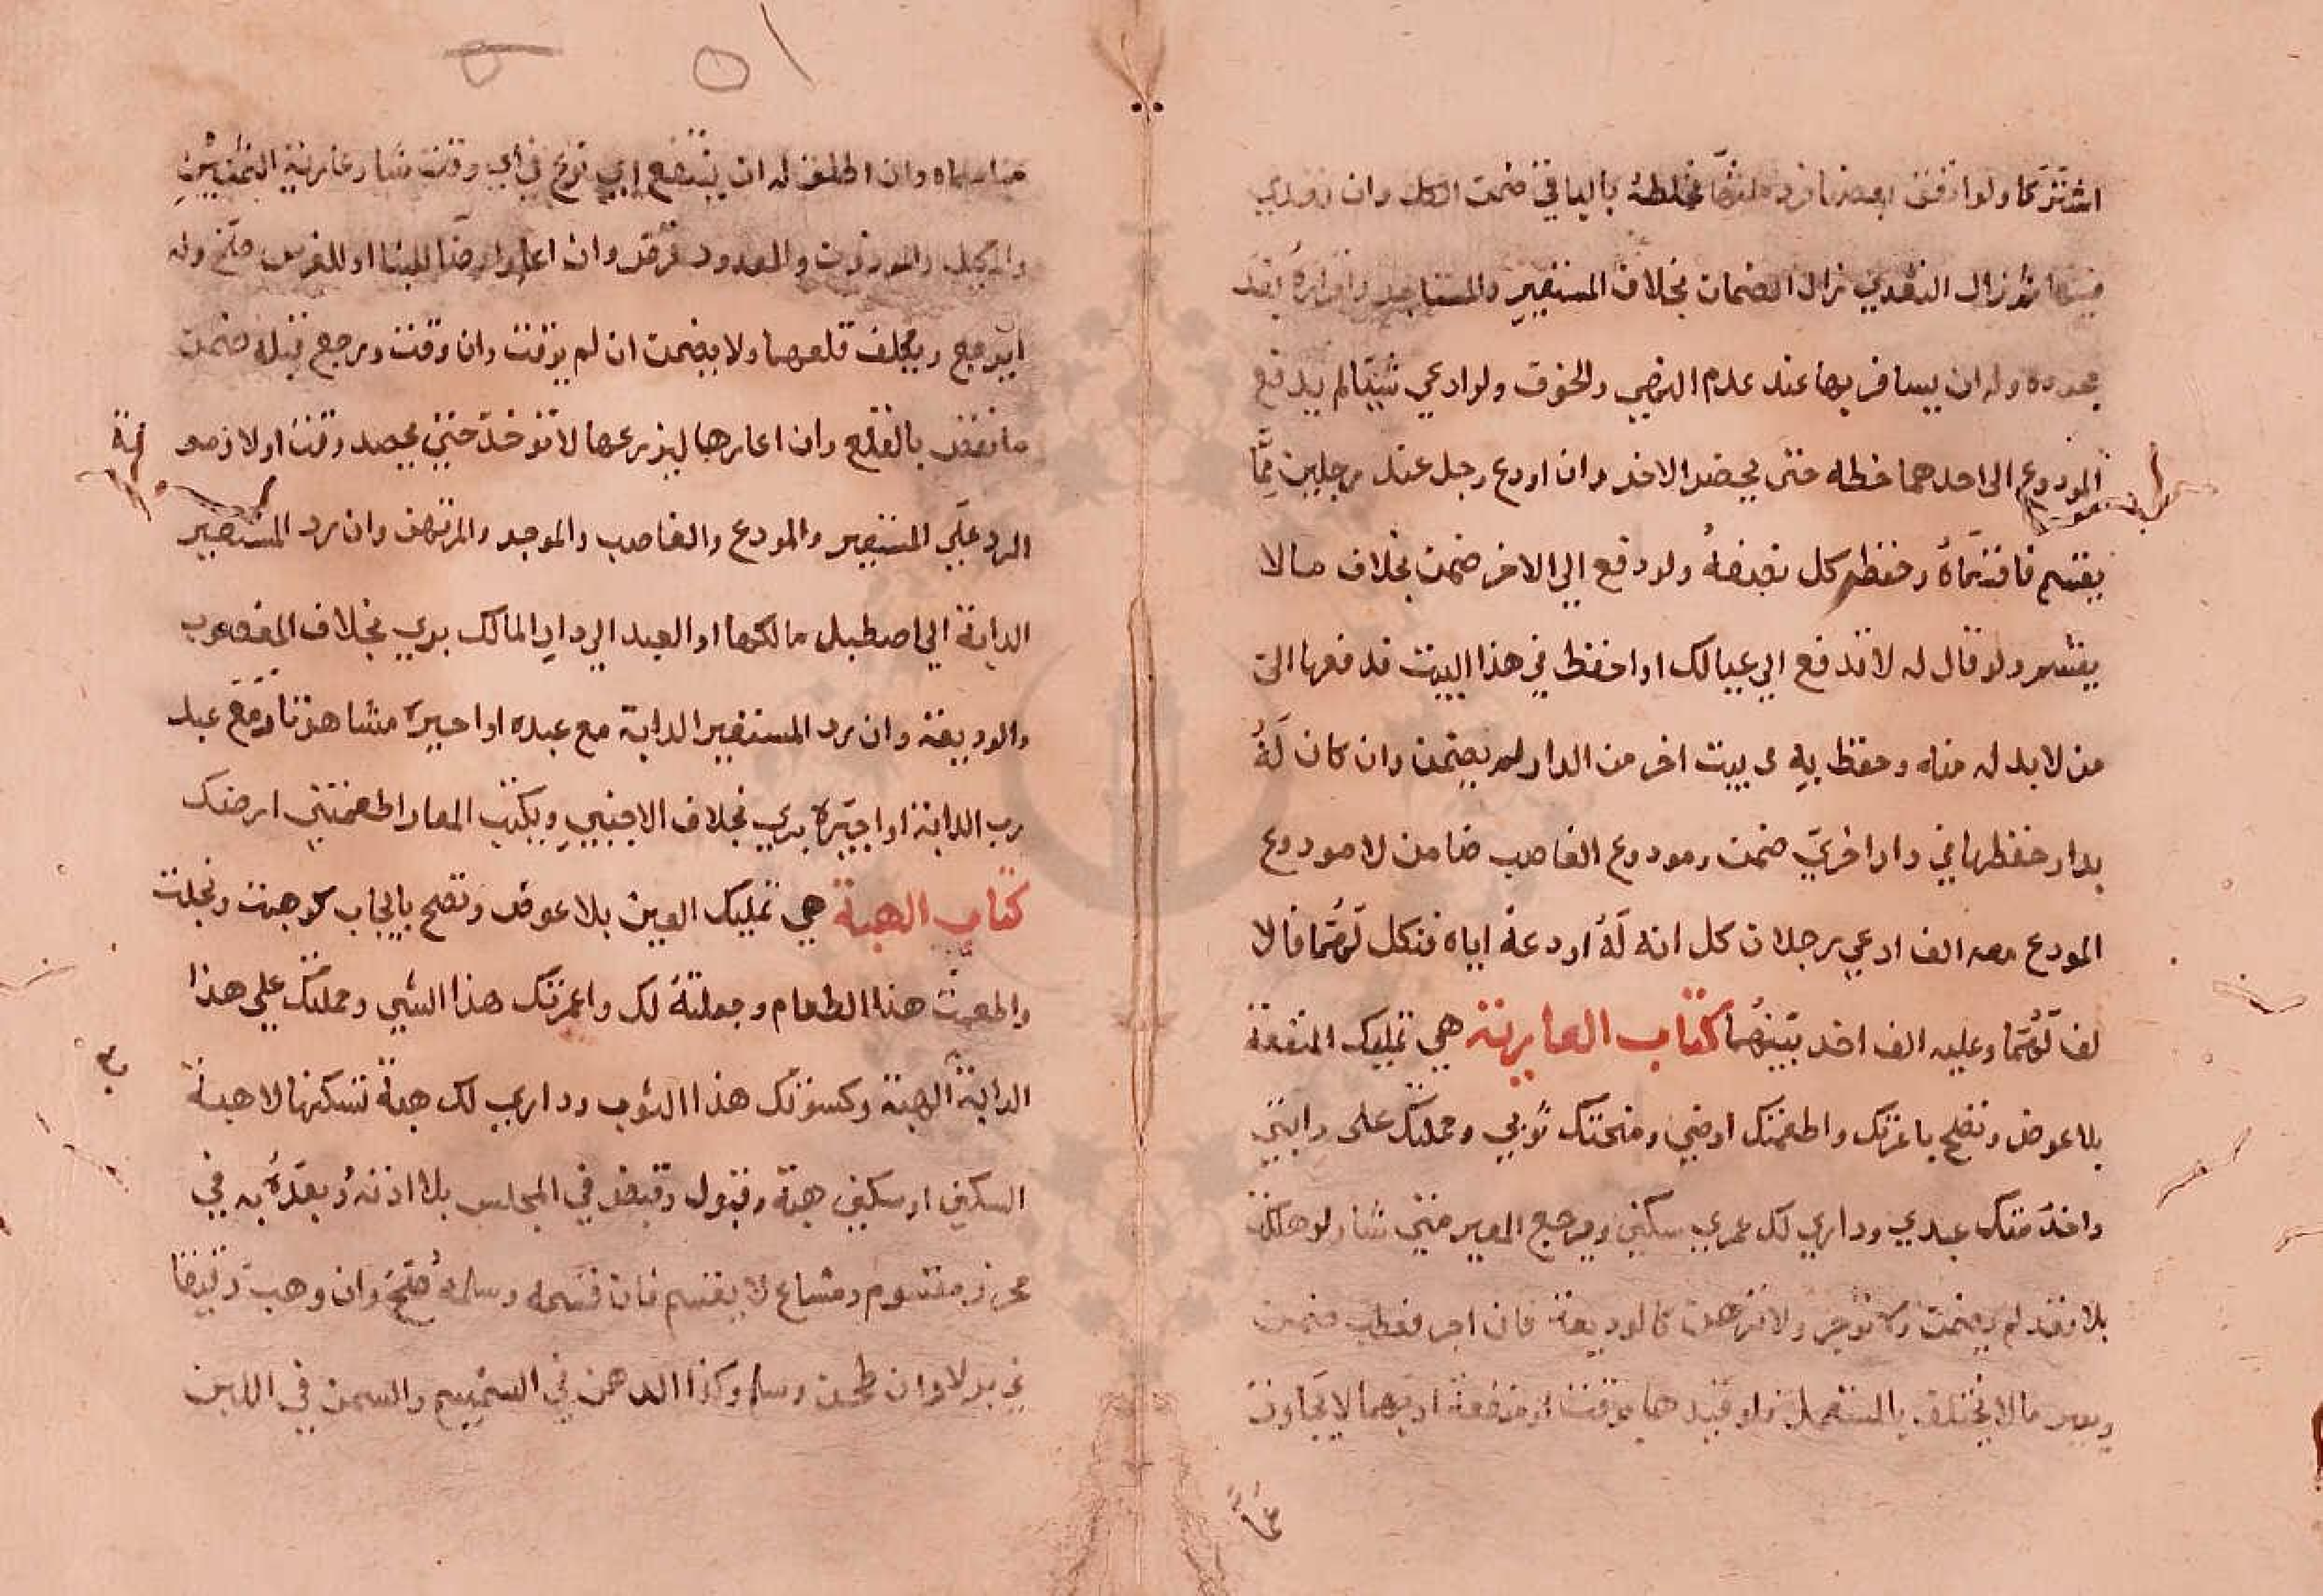 اشتركا ولو انفق بعضها فرد مثلها فخلطه بالباقي ضمن الكل وان تعدي
فيها ثم زال التعدي زال الضمان بخلاف المستعير والمستاجر واقراره بعد
جحوده وله ان يسافر بها عند عدم النهي والخوف ولو ادعي شيئا لم يدفع
المودوع الي احدهما حظه حتي يحضر الاخر وان اودع رجل عند رجلين مما
يقسم اقتسماه وحفظ كل نصفه ولو دفع الي الاخر ضمن بخلاف مالا
يقسم ولو قال له لا تدفع الي عيالك او احفظ في هذا البيت فدفعها الي
من لابد له منه وحفظ به في بيت اخر من الدار لم يضمن وان كان له
بدار حفظها في دار اخري ضمن ومودوع الغاصب ضامن لا مودوع
المودع معه الف ادعي رجلان كل انه له اودعه اياه فنكل لهما فالا
لف لهما وعليه الف اخر بينهما كتاب العارية هي تمليك المنفعة
بلا عوض وتصح باعرتك واطعمتك ارضي ومنحتك ثوبي وحملتك علي دابتي
واخدمتك عبدي وداري لك عمري سكني ويرجع المعير متي شاء ولو هلكت
بلا تعد لم يضمن ولا توجر ولا ترهن كالوديعة فان اجر فعطب ضمن
ويعير مالا يختلف بالمستعمل فلو قيدها بوقت او منفعة او بهما لا يتجاوز
عما سماه وان اطلق له ان ينتفع اي نوع في اي وقت شا وعارية الثمنين
والمكيل والموزون والمعدود قرض وان اعار ارضا للبنا او للغرس صح وله
ان يرجع ويكلف قلعهما ولا يضمن ان لم يوقت وان وقت ورجع قبله ضمن
ما نقص بالقلع وان اعارها ليزرعها لا توخذ حتي يحصد وقت اولا ومو
نة
الرد علي المستعير والمودع والغاصب والموجر والمرتهن وان رد المستعير
الدابة الي اصطبل مالكها او العبد الي دار المالك بري بخلاف المغصوب
والوديعة وان رد المستعير الدابة مع عبده او اجيره مشاهرة او مع عبد
رب الدابة او اجيره بري بخلاف الاجنبي ويكتب المعار اطعمتني ارضك
كتاب الهبة هي تمليك العين بلا عوض وتصح بايجاب كوهبت ونحلت
واطعمت هذا الطعام وجعلته لك واعمرتك هذا الشي وحملتك علي هذا
الدابة الهبة وكسوتك هذا الثوب وداري لك هبة تسكنها لا هبة
السكني او سكني هبة وقبول وقبض في المجلس بلا اذنه وبعده به في
محرز مقسوم ومشاع لا يقسم فان قسمه وسلمه صح وان وهب دقيقا
في بر لا وان طحن وسلم وكذا الدهن في السمسم والسمن في اللبن